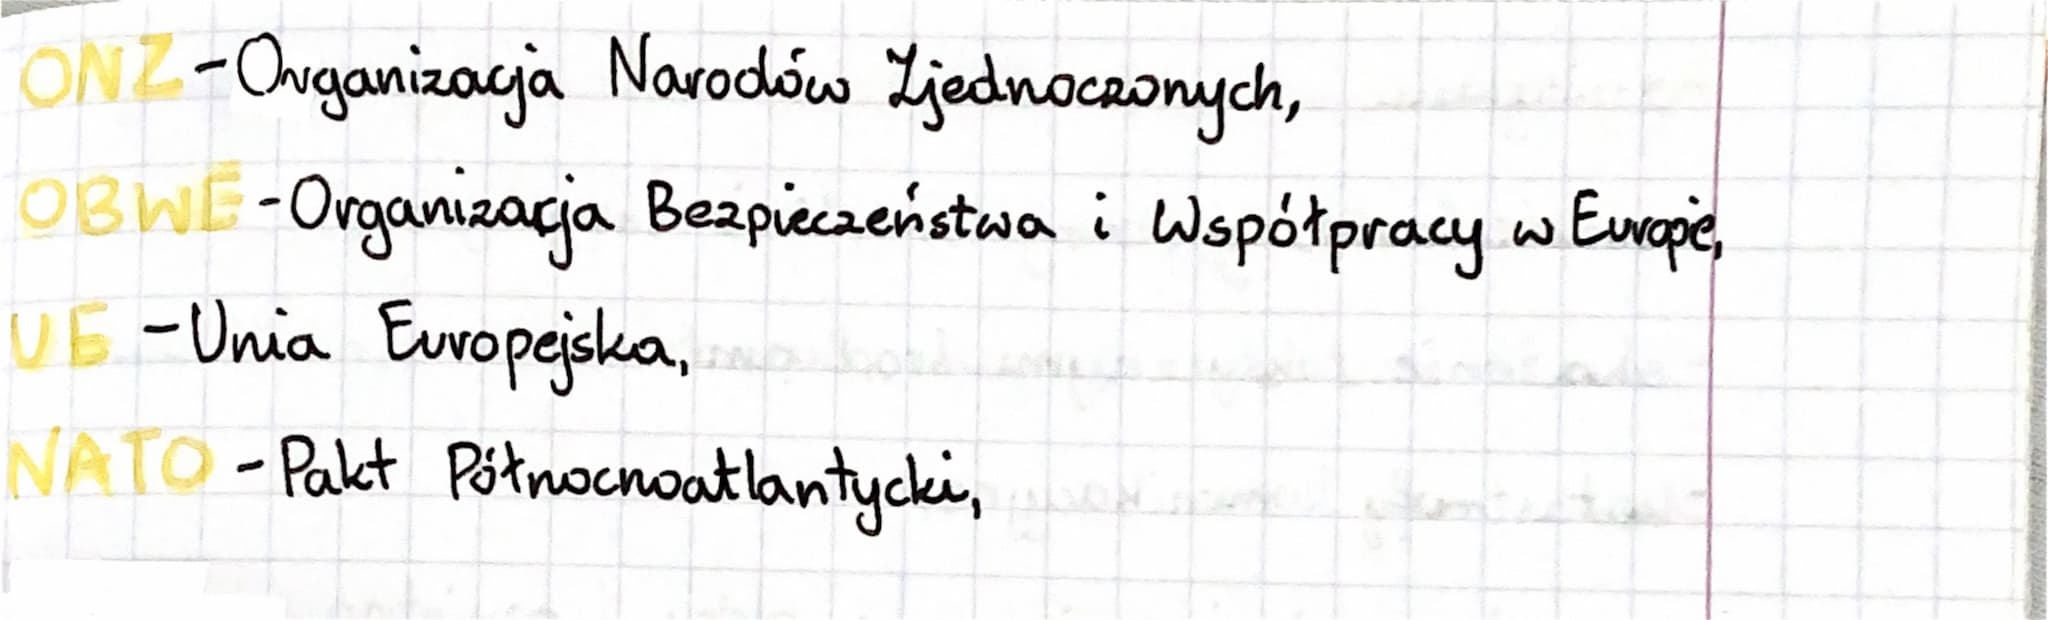 ONZ - Organizacja Narodów Zjednoczonych,
OBWE - Organizacja Bezpieczeństwa i Współpracy w Europie,
UE - Unia Europejska,
NATO - Pakt Północnoatlantycki,